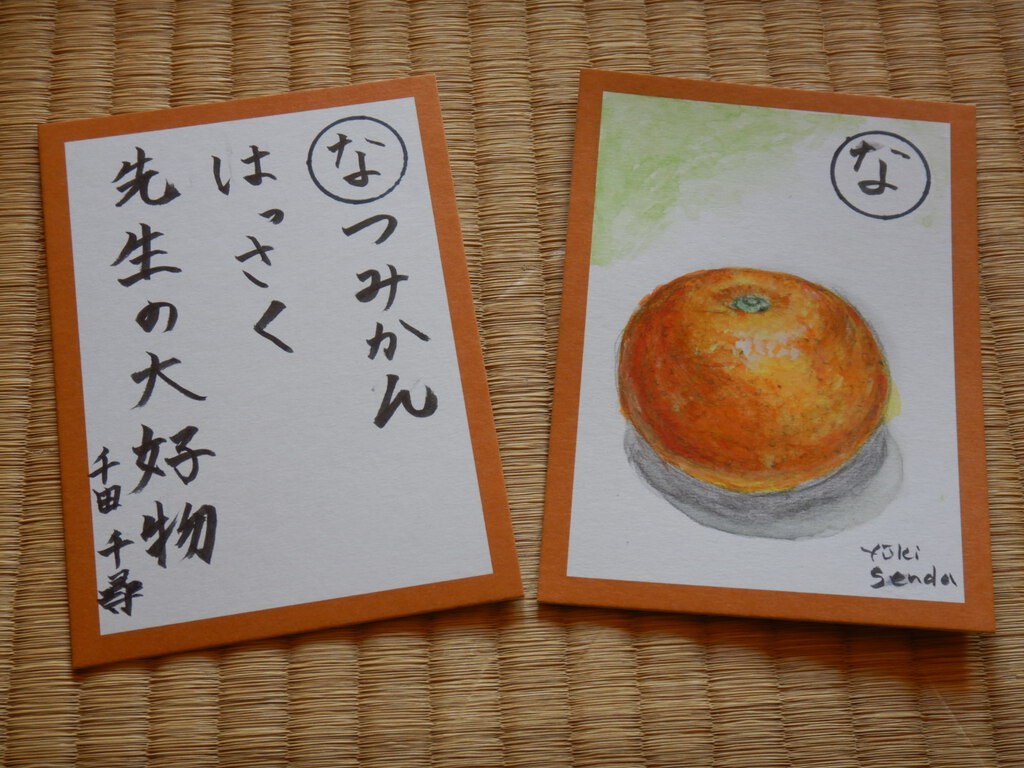 なつみかん
はっさく
先生の大好物
千田 千尋
な
Yuki
Senda